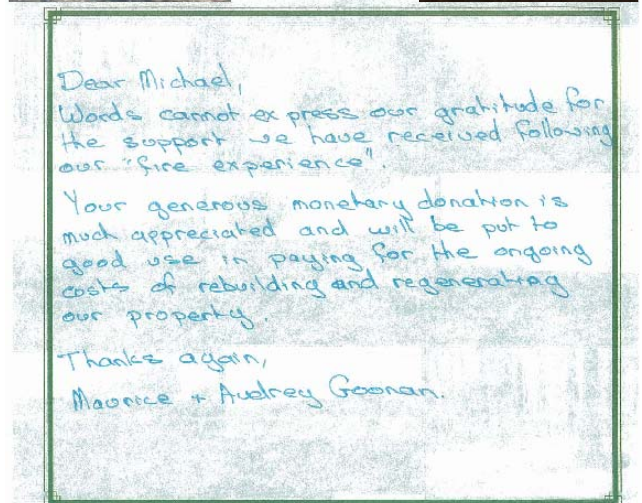 Dear Michael,
Words cannot express our gratitude for
the support we have received following
our "fire experience".
Your generous monetary donation is
much appreciated and will be put to
good use in paying for the ongoing
costs of rebuilding and regenerating
our property.
Thanks again,
Maurice + Audrey Goonan.